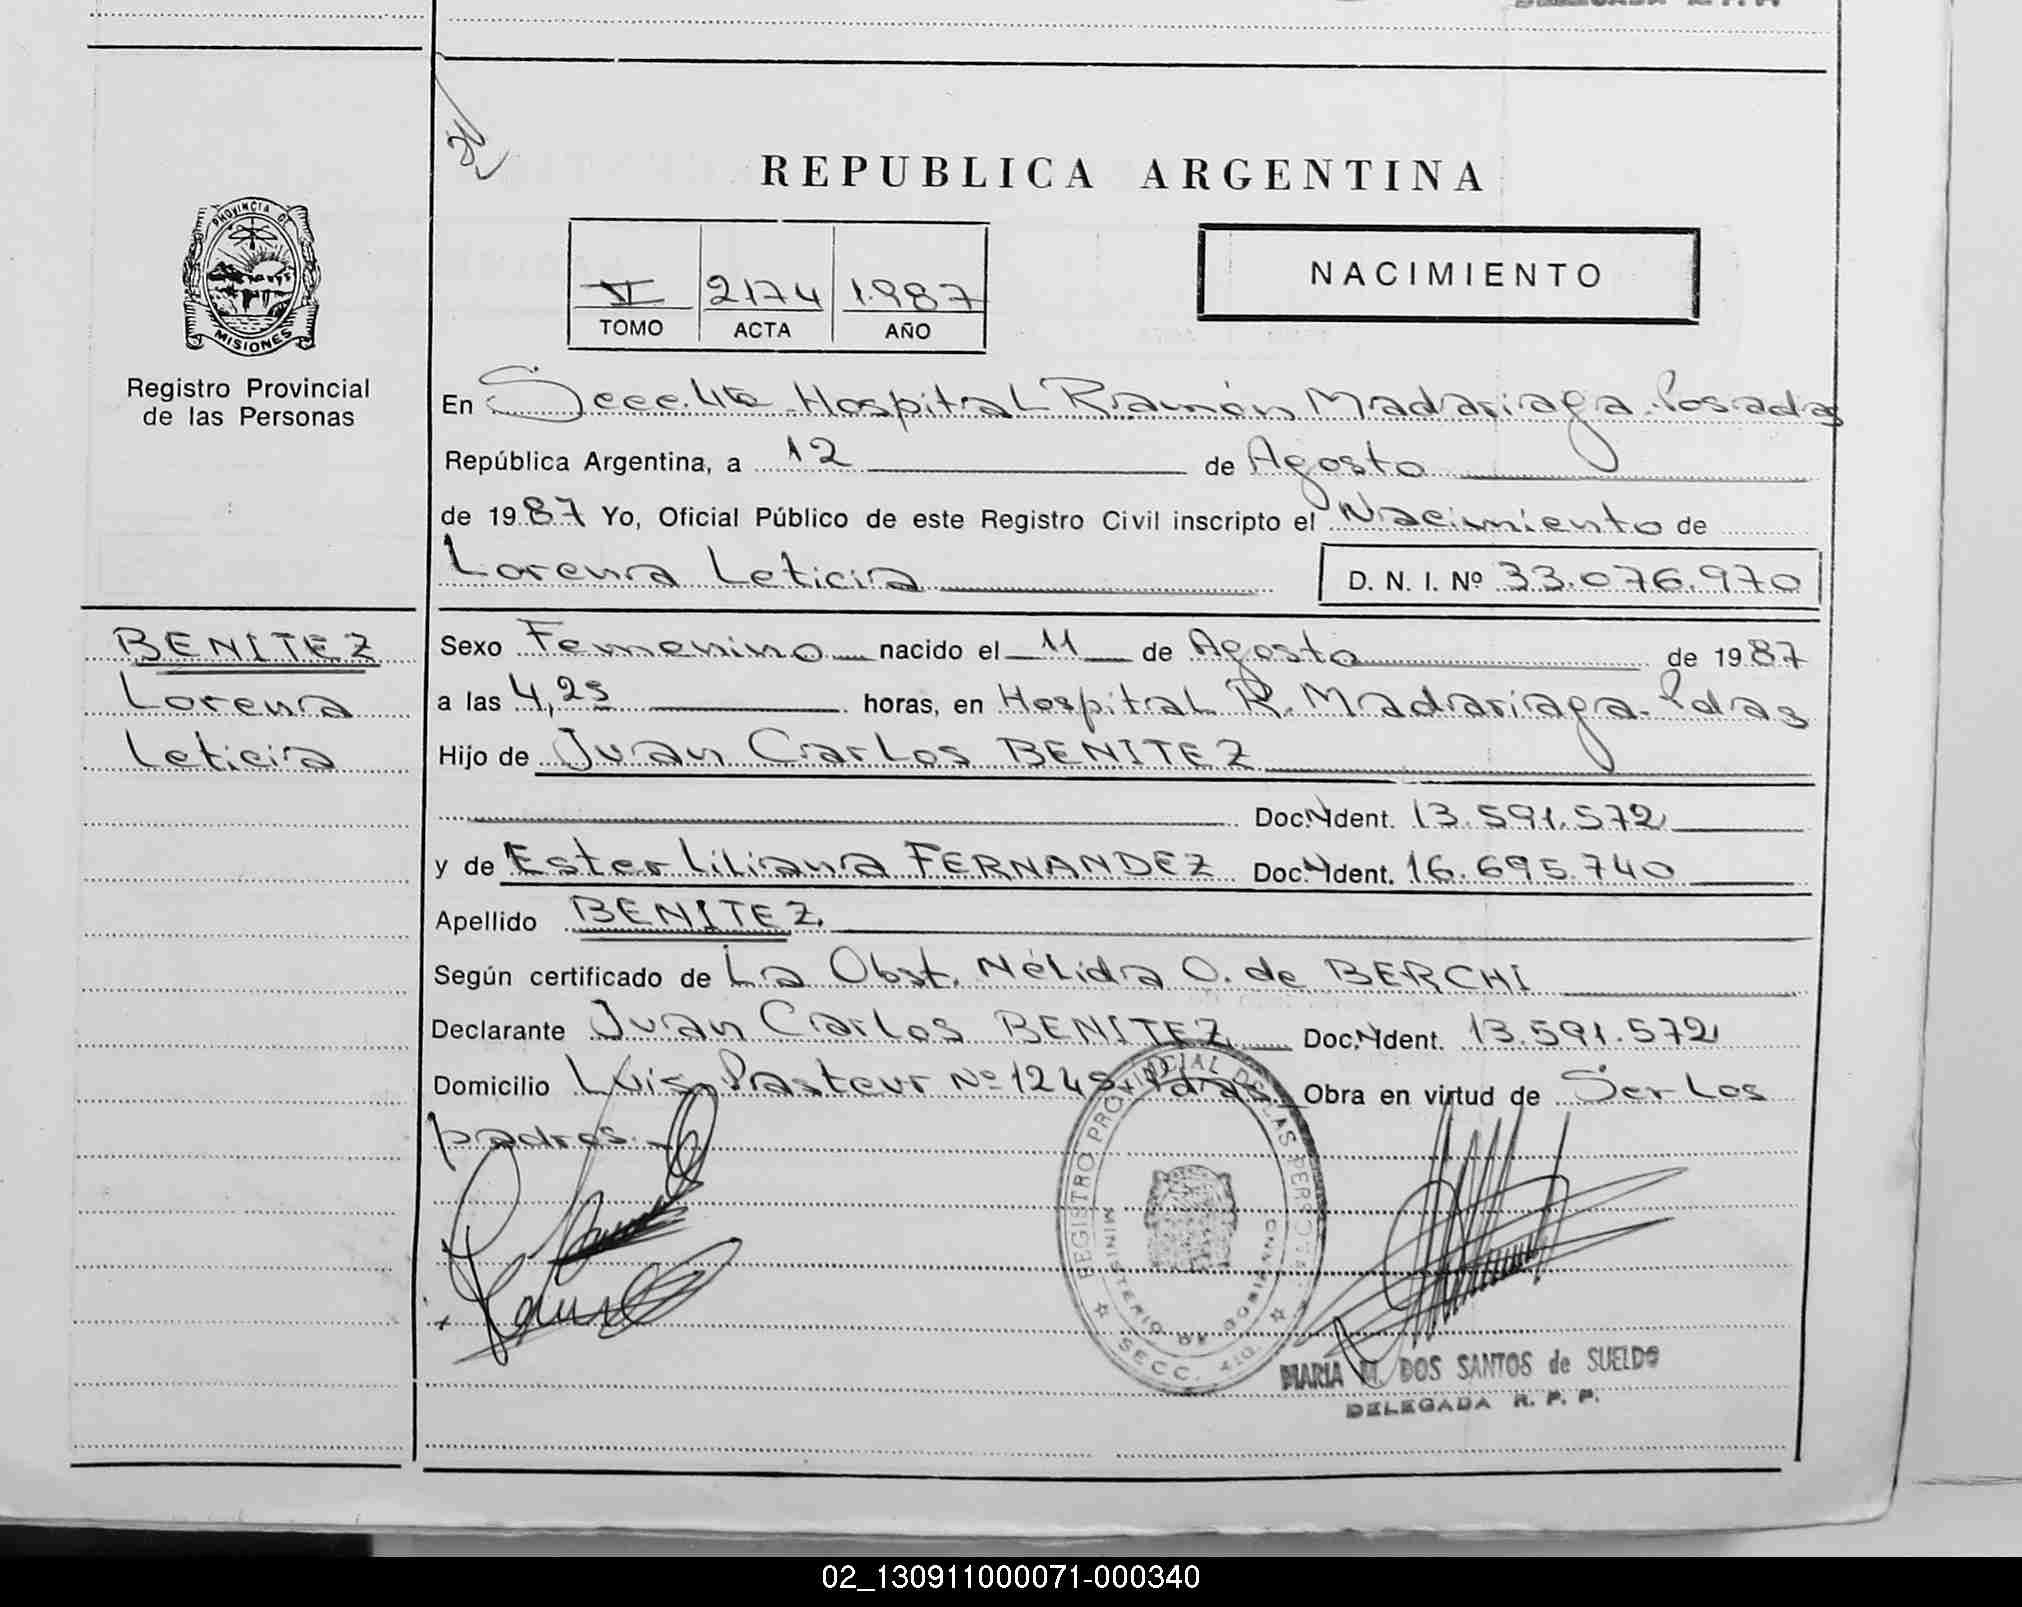 REPUBLICA ARGENTINA
PROVINCIA DE
MISIONES
Registro Provincial
de las Personas
VI 2174 1.987
TOMO ACTA AÑO
NACIMIENTO
En Secc. 4ta Hospital Ramón Madariaga. Posadas
República Argentina, a 12 de Agosto
de 1987 Yo, Oficial Público de este Registro Civil inscripto el Nacimiento de
Lorena Leticia D. N. I. Nº 33.076.970
BENITEZ
Lorena
Leticia
Sexo Femenino nacido el 11 de Agosto de 1987
a las 4,25 horas, en Hospital R. Madariaga. Pdas
Hijo de Juan Carlos BENITEZ
Doc. N Ident. 13.591.572
y de Ester Liliana FERNANDEZ Doc. N Ident. 16.695.740
Apellido BENITEZ.
Según certificado de La Obst. Nélida O. de BERCHI
Declarante Juan Carlos BENITEZ Doc. N Ident. 13.591.572
Domicilio Luis Pasteur Nº 1248. Pdas Obra en virtud de Ser Los
padres.
REGISTRO PROVINCIAL DE LAS PERSONAS
MINISTERIO DE GOBIERNO
SECC. 4ta.
MARIA DOS SANTOS de SUELDO
DELEGADA R. P. P.
02_130911000071-000340